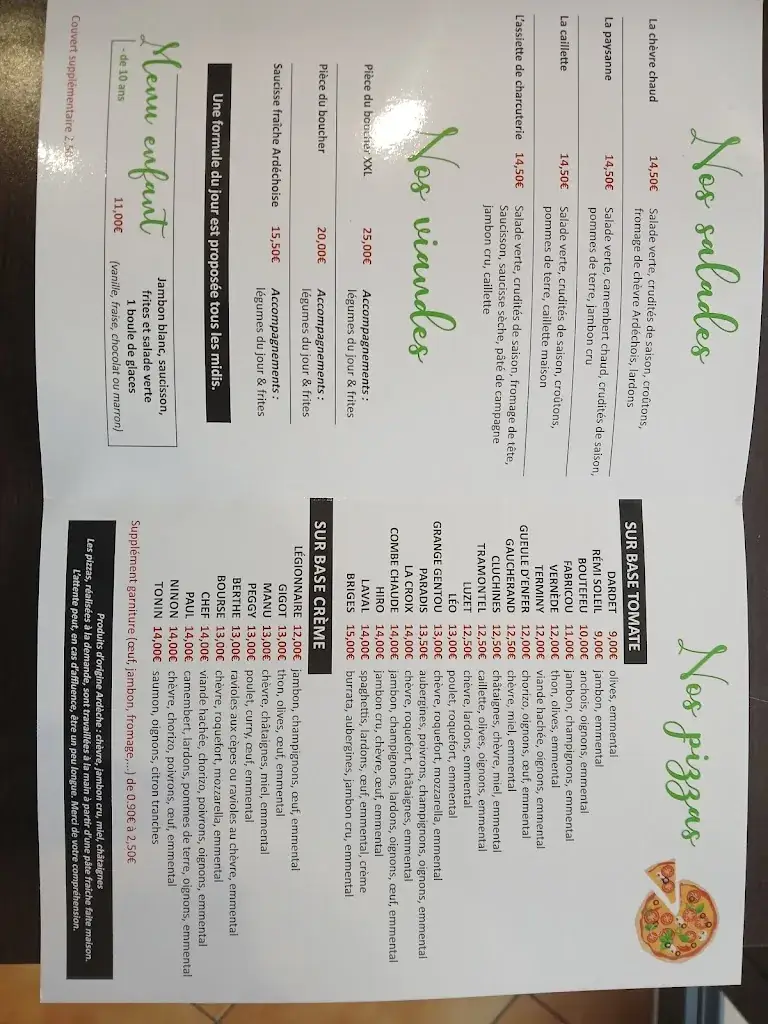 Nos salades
La chèvre chaud 14,50€ Salade verte, crudités de saison, croûtons,
fromage de chèvre Ardéchois, lardons
La paysanne 14,50€ Salade verte, camembert chaud, crudités de saison,
pommes de terre, jambon cru
La caillette 14,50€ Salade verte, crudités de saison, croûtons,
pommes de terre, caillette maison
L'assiette de charcuterie 14,50€ Salade verte, crudités de saison, fromage de tête,
Saucisson, saucisse sèche, pâté de campagne
jambon cru, caillette
Nos viandes
Pièce du boucher XXL 25,00€ Accompagnements :
légumes du jour & frites
Pièce du boucher 20,00€ Accompagnements :
légumes du jour & frites
Saucisse fraîche Ardéchoise 15,50€ Accompagnements :
légumes du jour & frites
Une formule du jour est proposée tous les midis.
Menu enfant
- de 10 ans
11,00€
Jambon blanc, saucisson,
frites et salade verte
1 boule de glaces
(vanille, fraise, chocolat ou marron)
Couvert supplémentaire
Nos pizzas
SUR BASE TOMATE
DARDET 9,00€ olives, emmental
RÉMI SOLEIL 9,00€ jambon, emmental
BOUTEFEU 10,00€ anchois, oignons, emmental
FABRICOU 11,00€ jambon, champignons, emmental
VERNÈDE 12,00€ thon, olives, emmental
TERMINY 12,00€ viande hachée, oignons, emmental
GUEULE D'ENFER 12,00€ chorizo, oignons, œuf, emmental
GAUCHERAND 12,50€ chèvre, miel, emmental
CLUCHINES 12,50€ châtaignes, chèvre, miel, emmental
TRAMONTEL 12,50€ caillette, olives, oignons, emmental
LUZET 12,50€ chèvre, lardons, emmental
LÉO 13,00€ poulet, roquefort, emmental
GRANGE GENTOU 13,00€ chèvre, roquefort, mozzarella, emmental
PARADIS 13,50€ aubergines, poivrons, champignons, oignons, emmental
LA CROIX 14,00€ chèvre, roquefort, châtaignes, emmental
COMBE CHAUDE 14,00€ jambon, champignons, lardons, oignons, œuf, emmental
HIRO 14,00€ jambon cru, chèvre, œuf, emmental
LAVAL 14,00€ spaghettis, lardons, œuf, emmental, crème
BRIGES 15,00€ burrata, aubergines, jambon cru, emmental
SUR BASE CRÈME
LÉGIONNAIRE 12,00€ jambon, champignons, œuf, emmental
GIGOT 13,00€ thon, olives, œuf, emmental
MANU 13,00€ chèvre, châtaignes, miel, emmental
PEGGY 13,00€ poulet, curry, œuf, emmental
BERTHE 13,00€ ravioles aux cèpes ou ravioles au chèvre, emmental
BOURSE 13,00€ chèvre, roquefort, mozzarella, emmental
CHEF 14,00€ viande hachée, chorizo, poivrons, oignons, emmental
PAUL 14,00€ camembert, lardons, pommes de terre, oignons, emmental
NINON 14,00€ chèvre, chorizo, poivrons, œuf, emmental
TONIN 14,00€ saumon, oignons, citron tranches
Supplément garniture (œuf, jambon, fromage,...) de 0.30€ à 2,50€
Produits d'origine Ardèche : chèvre, jambon cru, miel, châtaignes
Les pizzas, réalisées à la demande, sont travaillées à la main à partir d'une pâte fraîche faite maison.
L'attente peut, en cas d'affluence, être un peu longue. Merci de votre compréhension.